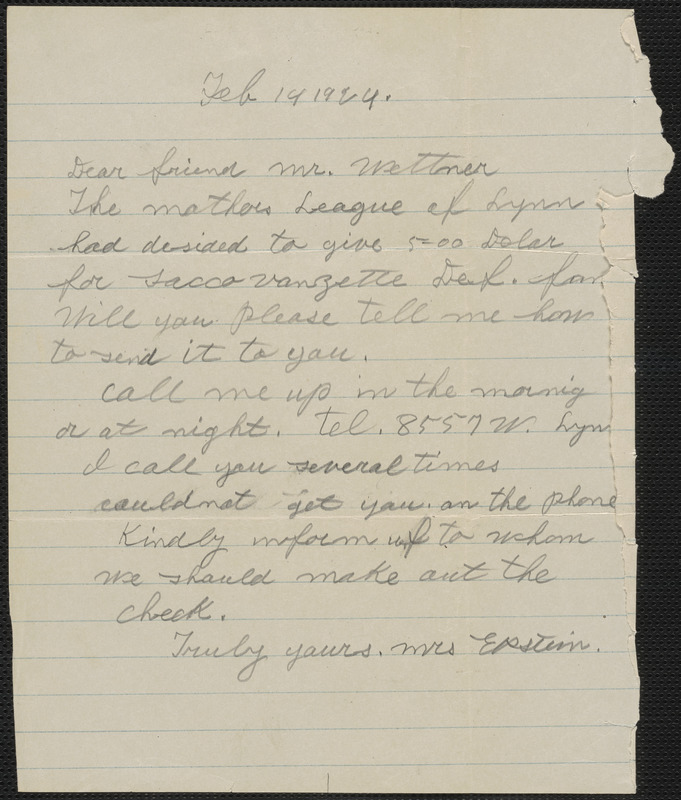 Feb 14 1924.
Dear friend Mr. Wettner
The mothers League of Lynn
had desided to give 5=00 Dolar
for Sacco Vanzette Def. fon
Will you Please tell me how
to send it to you.
Call me up in the mornig
or at night. Tel. 8557 W. Lyn
I call you several times
could not get you on the phone
Kindly inform to whom
we should make out the
check.
Truly yours. Mrs Epstein.